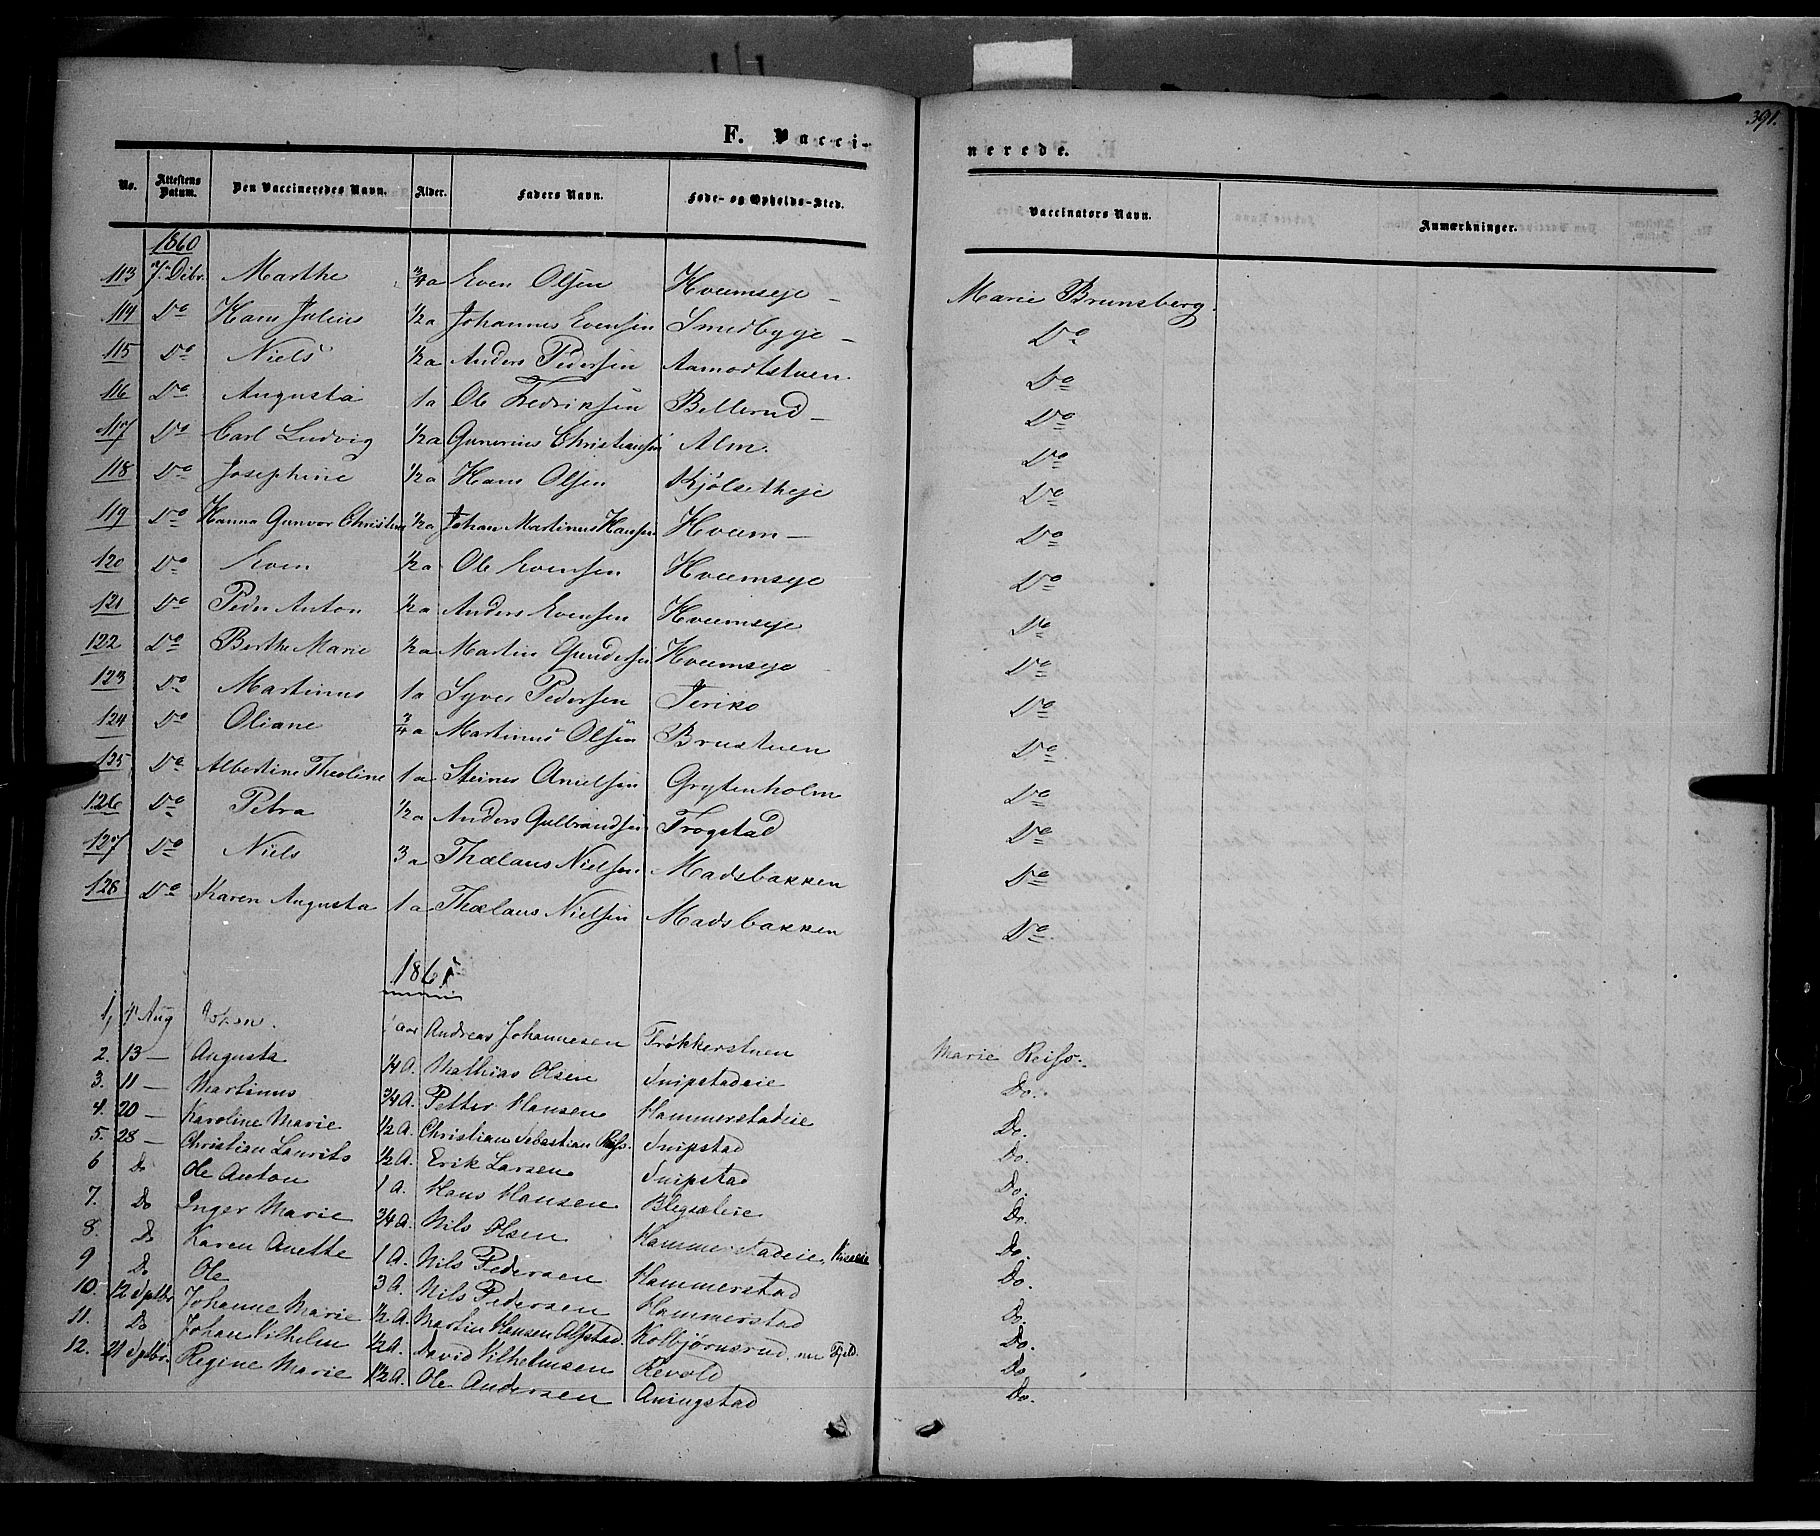 391.
F. Vacci-
nerede.
No. Attestens Datum. Den Vaccineredes Navn. Alder. Faders Navn. Føde- og Opholds-Sted. Vaccinators Navn. Anmærkninger.
1860
113 7. Dcbr. Marthe 3/4 a Even Olsen Hveemseje - Marie Brunsberg.
114 Do Hans Julius 1/2 a Johannes Evensen Smedbyge - Do
115 Do Niels 1/2 a Anders Pedersen Aamodtstuen. Do
116 Do Augusta 1 a Ole Fedriksen Bellerud - Do
117 Do Carl Ludvig 1/2 a Gunerius Christiansen Alm. Do
118 Do Josephine 1/2 a Hans Olsen Kjølsetheje Do
119 Do Hanna Gunvor Christine 1/2 a Johan Martinus Hansen Hveem - Do
120 Do Even 1/2 a Ole Evensen Hveemseje Do
121 Do Peder Anton 1/2 a Anders Evensen Hveemseje Do
122 Do Berthe Marie 1/2 a Martin Gundersen Hveemseje Do
123 Do Martinus 1 a Syver Pedersen Jeriko Do
124 Do Oliane 3/4 a Martinus Olsen Brustuen Do
125 Do Albertine Theoline 1 a Steiner Anielsen Grytenholm Do
126 Do Petra 1/2 a Anders Gulbrandsen Trogstad Do
127 Do Niels 3 a Thælaus Nielsen Madsbakken Do
128 Do Karen Augusta 1 a Thælaus Nielsen Madsbakken Do.
1861
1, 4 Aug 1 aar Andreas Johannesen Frøkkerstuen Marie Reiss.
2. 13 - Augusta 1/4 A. Mathias Olsen Snipstadeie Do.
3. 11 - Martinus 3/4 A. Petter Hansen Hammerstadeie Do.
4. 20 - Karoline Marie 1/2 A. Christian Sebastian Reiss. Snipstad Do.
5. 28 - Christian Laurits 1/2 A. Erik Larsen Snipstad Do.
6 Do Ole Anton 1 A. Hans Hansen Bleguteie Do.
7. Do Inger Marie 3/4 A. Nils Olsen Hammerstadeie, Do.
8. Do Karen Anette 1 A. Nils Pedersen Hammerstad Do.
9 Do Ole 3 A. Nils Pedersen Hammerstad Do
10. 12 Sptbr. Johanne Marie 1/2 A. Martin Hansen Alfstad. Kolbjørnsrud, Do.
11. Do Johan Vilhelm 1/2 A. David Vilhelmsen Revold Do
12. 21 Sptbr. Regine Marie 1 1/2 A. Ole Andersen Aningstad Do.